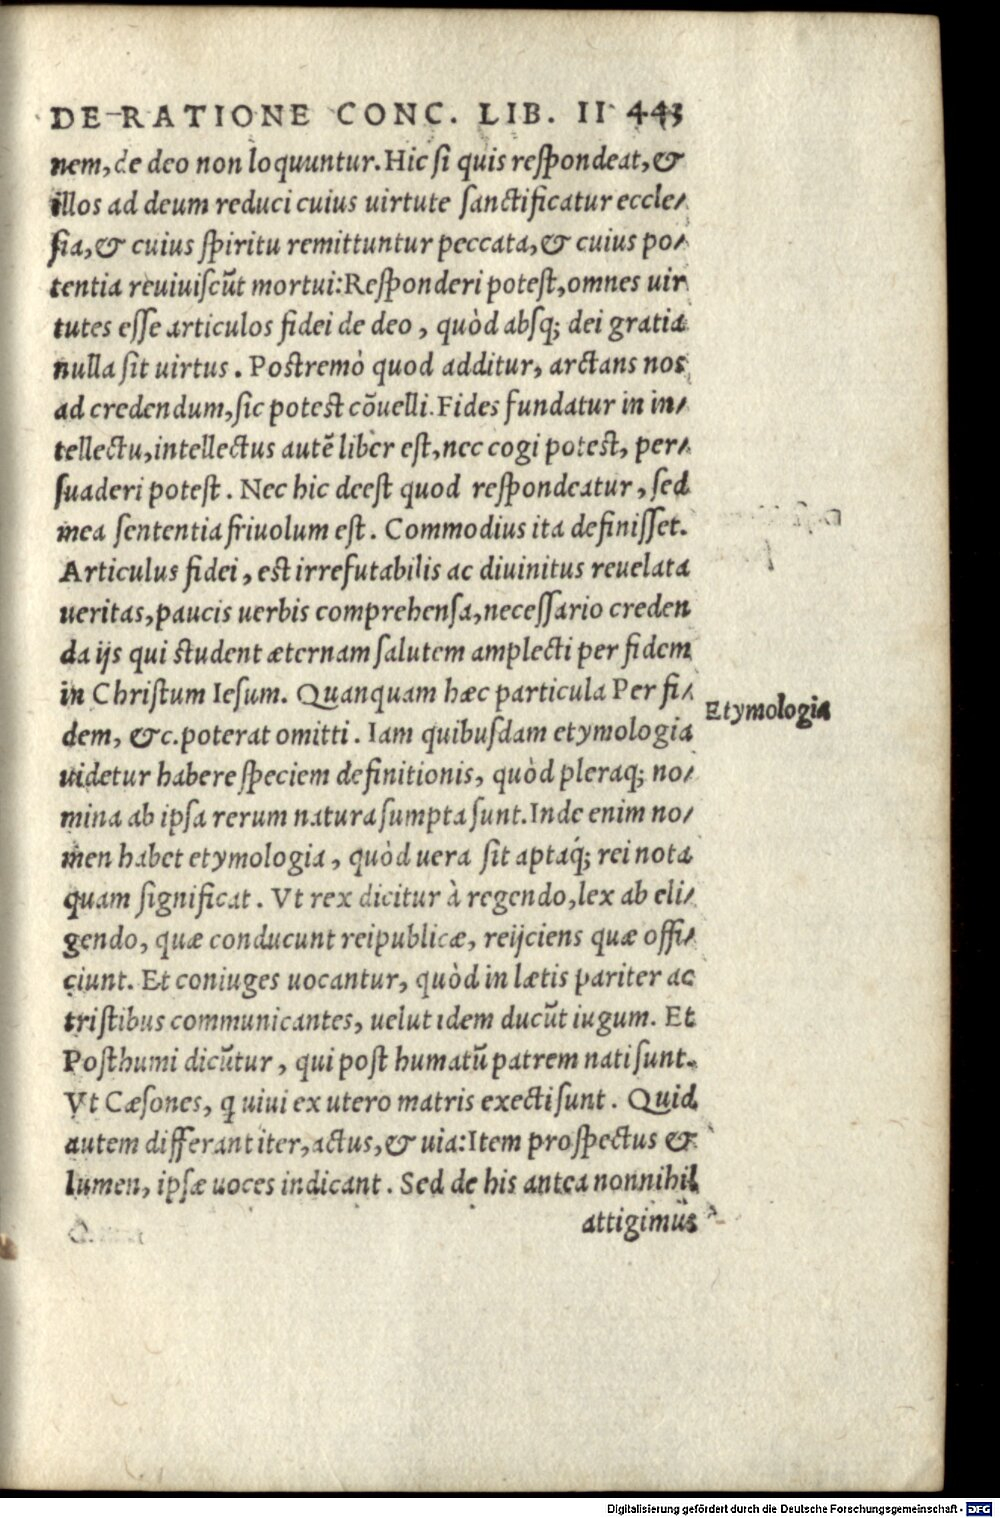 DE RATIONE CONC. LIB. II 443
nem, de deo non loquuntur. Hic ſi quis reſpondeat, &
illos ad deum reduci cuius uirtute ſanctificatur eccle/
ſia, & cuius ſpiritu remittuntur peccata, & cuius po/
tentia reuiuiſcũt mortui: Reſponderi poteſt, omnes uir
tutes eſſe articulos fidei de deo, quòd abſq; dei gratia
nulla ſit uirtus. Poſtremò quod additur, arctans nos
ad credendum, ſic poteſt cõuelli. Fides fundatur in in/
tellectu, intellectus autẽ liber eſt, nec cogi poteſt, per/
ſuaderi poteſt. Nec hic deeſt quod reſpondeatur, ſed
mea ſententia friuolum eſt. Commodius ita definiſſet.
Articulus fidei, eſt irrefutabilis ac diuinitus reuelata
ueritas, paucis uerbis comprehenſa, neceſſario creden
da ijs qui ſtudent æternam ſalutem amplecti per fidem
in Chriſtum Ieſum. Quanquam hæc particula Per fi/
Etymologia
dem, &c. poterat omitti. Iam quibuſdam etymologia
uidetur habere ſpeciem definitionis, quòd pleraq; no/
mina ab ipſa rerum natura ſumpta ſunt. Inde enim no/
men habet etymologia, quòd uera ſit aptaq́; rei nota
quam ſignificat. Vt rex dicitur à regendo, lex ab eli/
gendo, quæ conducunt reipublicæ, reijciens quæ offi/
ciunt. Et coniuges uocantur, quòd in lætis pariter ac
triſtibus communicantes, uelut idem ducũt iugum. Et
Poſthumi dicũtur, qui poſt humatũ patrem nati ſunt.
Vt Cæſones, q uiui ex utero matris execti ſunt. Quid
autem differant iter, actus, & uia: Item proſpectus &
lumen, ipſæ uoces indicant. Sed de his antea nonnihil
attigimus
Digitalisierung gefördert durch die Deutsche Forschungsgemeinschaft - DFG